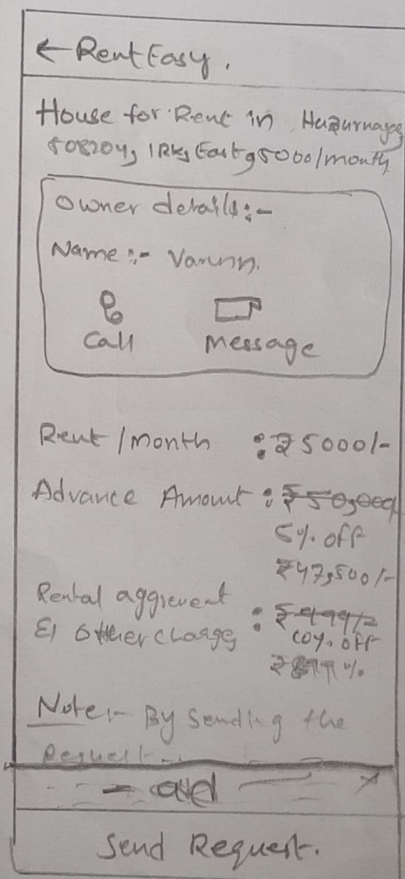 ← Rent Easy.
House for Rent in Huzurnagar
508204, 1RK, East, 5000/month
Owner details:-
Name:- Varunn.
Call Message
Rent/month : ₹5000/-
Advance Amount : ₹50,000
5% off
₹47,500/-
Rental aggrement
& other charges : ₹999/-
10% off
Note:- By Sending the
Request
ad X
Send Request.